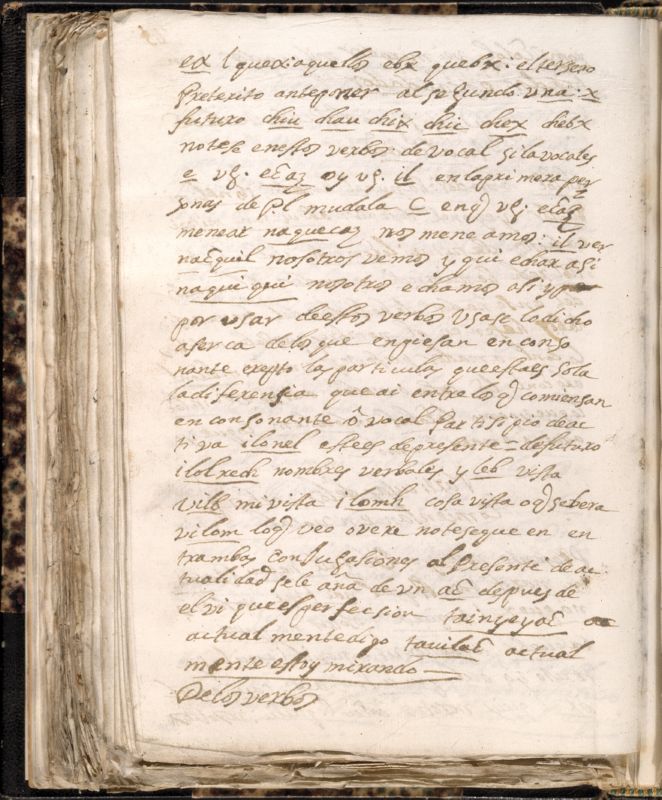 ex l quexi aquellos ebx quebx: elterzero
Preterito anteponer al segundo vna: x
futuro chiu chau chix chic chex chebx
notese enestos verbos de vocal si la vocal es
e vg. ecaz oy vg. il en la primera per
sonas de Pl muda la c en q vg. ecaz
menear naquecaz nos meneamos: il ver
naquil nosotros vemos y qui echar asi
naqui qui nosotros echamos asi y pa
por usar de estos verbos usase lo dicho
aserca de los que enpiesan en conso
nante exepto las particulas que esta es sola
la diferensia que ai entre los q comiensan
en consonante ô vocal Partisipio de ac
tiva ilonel este es de presente = de futuro
ilolredi nombres verbales y leb vista
vilb mi vista ilomh cosa vista o q se vera
vilom lo q veo o vere notese que en en
trambas Conjugasiones al Presente de ac
tualidad se le aña de vn ac depues de
el vi que es perfecsion tainyeyac
actualmente digo tavilac actual
mente estoy mirando
De los verbos